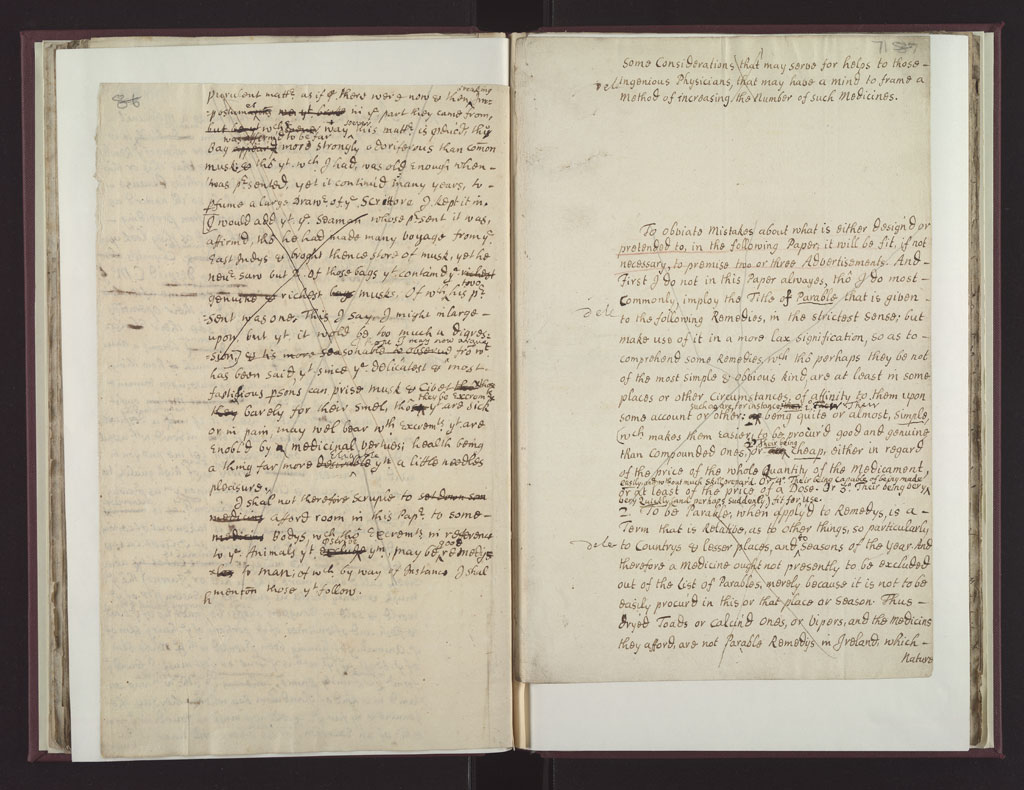 86
purulent matt^r as if y^e there were now & then
breaking im-
=postum in y^e part they came from,
but w^ch way soever this matt^r is produc't, this
was affirm'd to be far
Bag appear'd more strongly odoriferous than com̄on
musk; & tho' y^t w^ch I had, was old enough when-
'twas p^rsented, yet it continu'd many years, to-
p^rfume a large Draw^r of y^e Scrittore I kept it in.
I would add y^t y^e Seaman whose p^rsent it was,
affirm'd, tho he had made many voyage from y^e
East Indys & broght thence store of musk, yet he
nev^r saw but 2 of those bags y^t contain'd y^e richest
genuine & richest musks, Of w^ch two his p^r-
=sent was one. This I say, I might inlarge-
upon, but y^t it wold be too much a digres-
=sion, & tis more seasonable
has been said, y^t since y^e delicatest & most
fastidious p^rsons can prise musk & Civet
they barely for their smel, tho' they be Excrem^ts
y^t are sick
or in pain, may wel bear w^th Excrem^ts y^t are
Enobl'd by medicinal vertues; health being
a thing far more desirable y^n a little needles
pleasure.
I shal not therefore scruple to set down som
medicins afford room in this Pap^r to some-
medicins Bodys, w^ch tho' Excrem^ts in reference
to y^e Animals y^t y^m, may be good remedys
to man; of w^ch by way of Instance I shal
mention those y^t follow.
71
some Considerations, that may serve for helps to those-
Ingenious Physicians, that may have a mind to frame a
Method of increasing, the Number of such Medicines.
To obviate Mistakes about what is either design'd or
pretended to, in the following Paper, it will be fit, if not
necessary, to premise two or three Advertisements. And-
First I do not in this Paper alwayes, tho' I do most-
dele
Commonly, imploy the Title of Parable, that is given-
to the following Remedies, in the strictest sense; but
make use of it in a more lax signification, so as to-
comprehend some Remedies, w^ch tho perhaps they be not
of the most simple & obvious kind, are at least in some
places or other Circumstances, of affinity to them upon
such as are, for instance, 1. Their
some account or other: being quite or almost, Simple,
which makes them Easier, to be procur'd good and genuine
2 Their being
than compounded ones, or Cheap, either in regard
of the price of the whole Quantity of the Medicament,
easily and without much skill prepar'd. Or 4. Their being capable of being made
or at least of the price of a Dose. Or 3. Their being very
very quickly (and perhaps suddenly) fit for use.
2. To be Parable, when apply'd to Remedys, is a-
Term that is Relative, as to other things, so particularly,
dele
to Countrys & lesser places, and to Seasons of the Year. And
therefore a Medicine ought not presently to be excluded
out of the List of Parables, merely because it is not to be
easily procur'd in this or that place or Season. Thus-
dryed Toads or calcin'd ones, or Vipers, and the Medicins
they afford, are not Parable Remedys in Ireland, which-
Nature